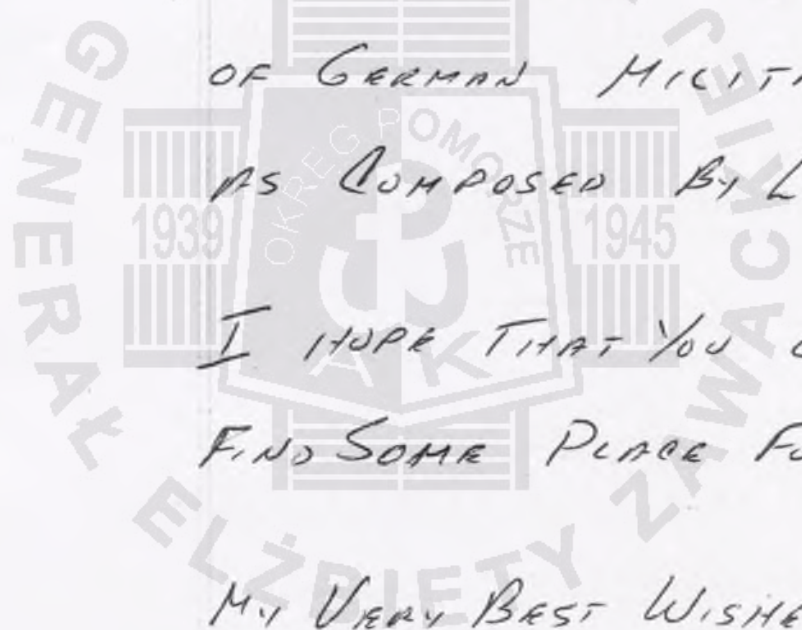 OF GERMAN MILITA
AS COMPOSED BY L
I HOPE THAT YOU
FIND SOME PLACE FO
MY VERY BEST WISHE
GENERAŁ ELŻBIETY ZAWACKIEJ
OKRĘG POMORZE
1939
1945
AK